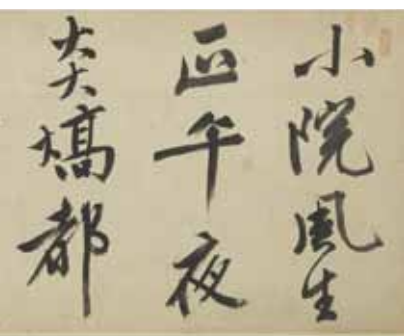 小院風生
正午夜
炎熇都